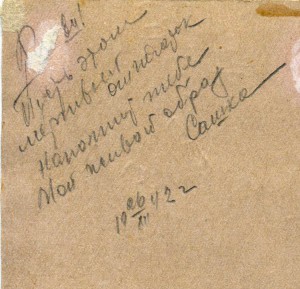 Пусть этот
мертвый отпечаток
напомнит тебе
мой живой образ
Сашка
19 26/III 42 г